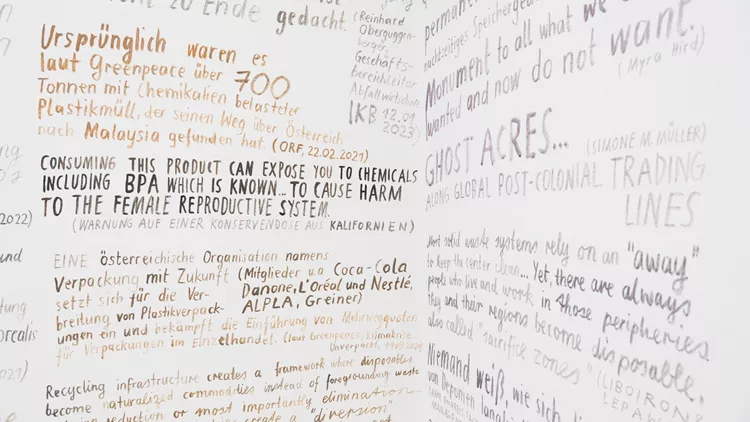 zu Ende gedacht.
(Reinhard
Oberguggen-
berger,
Geschäfts-
bereichleiter
Abfallwirtschaft
IKB 12.01
2023)
Ursprünglich waren es
laut Greenpeace über 700
Tonnen mit Chemikalien belasteter
Plastikmüll, der seinen Weg über Österreich
nach Malaysia gefunden hat (ORF, 22.02.2021)
CONSUMING THIS PRODUCT CAN EXPOSE YOU TO CHEMICALS
INCLUDING BPA WHICH IS KNOWN... TO CAUSE HARM
TO THE FEMALE REPRODUCTIVE SYSTEM.
(WARNUNG AUF EINER KONSERVENDOSE AUS KALIFORNIEN)
2022)
und
2021)
EINE österreichische Organisation namens
Verpackung mit Zukunft (Mitglieder u.a Coca-Cola
Danone, L'Oréal und Nestlé,
ALPLA, Greiner)
setzt sich für die Ver-
breitung von Plastikverpack-
ungen ein und bekämpft die Einführung von Mehrwegquoten
für Verpackungen im Einzelhandel. (laut Greenpeace,
Recycling infrastructure creates a framework where disposables
become naturalized commodities instead of foregrounding waste
reduction or most importantly elimination
create a "diversion"
permanent
Monument to all what we
wanted and now do not want.
(Myra Hird)
GHOST ACRES... (SIMONE M. MÜLLER)
ALONG GLOBAL POST-COLONIAL TRADING
LINES
Most solid waste systems rely on an "away"
to keep the center clean... Yet, there are always
people who live and work in those peripheries.
They and their regions become disposable,
also called "sacrifice zones" (LIBOIRON &
LEPAW
Niemand weiß, wie sich die
von Deponien langfristig